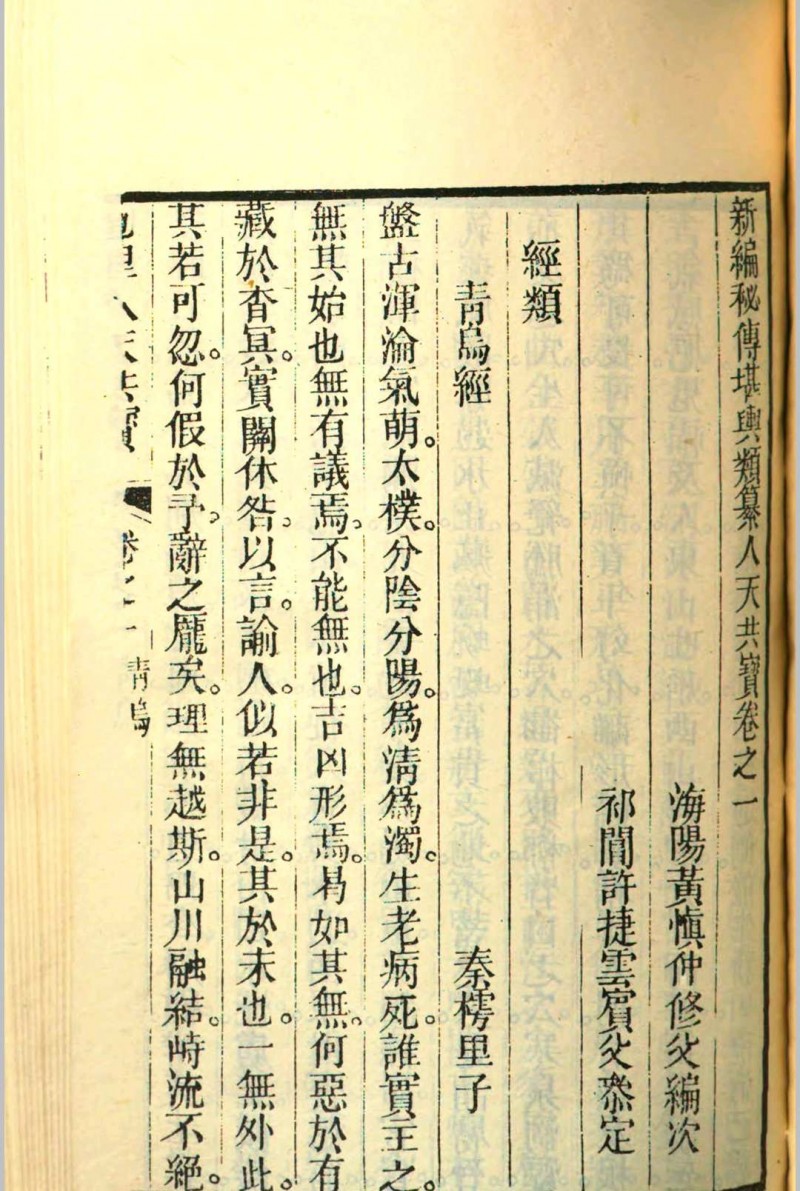 新編秘傳堪輿類纂人天共寶卷之一
海陽黃慎仲修父編次
祁閶許捷雲賓父叅定
經類
青烏經 秦樗里子
盤古渾淪氣萌。太樸。分陰分陽。爲淸爲濁。生老病死。誰實主之。
無其始也無有議焉。不能無也。吉凶形焉。曷如其無。何惡於有
藏於杳冥。實關休咎。以言。諭人。似若非是。其於末也。一無外此。
其若可忽。何假於予。辭之厖矣。理無越斯。山川融結。峙流不絕。
卷之一 青烏